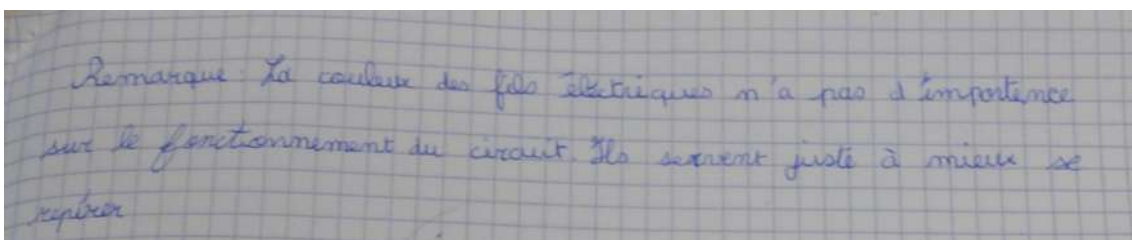 Remarque: La couleur des fils électriques n'a pas d'importence
sur le fonctionnement du circuit. Ils servent juste à mieux se
repérer